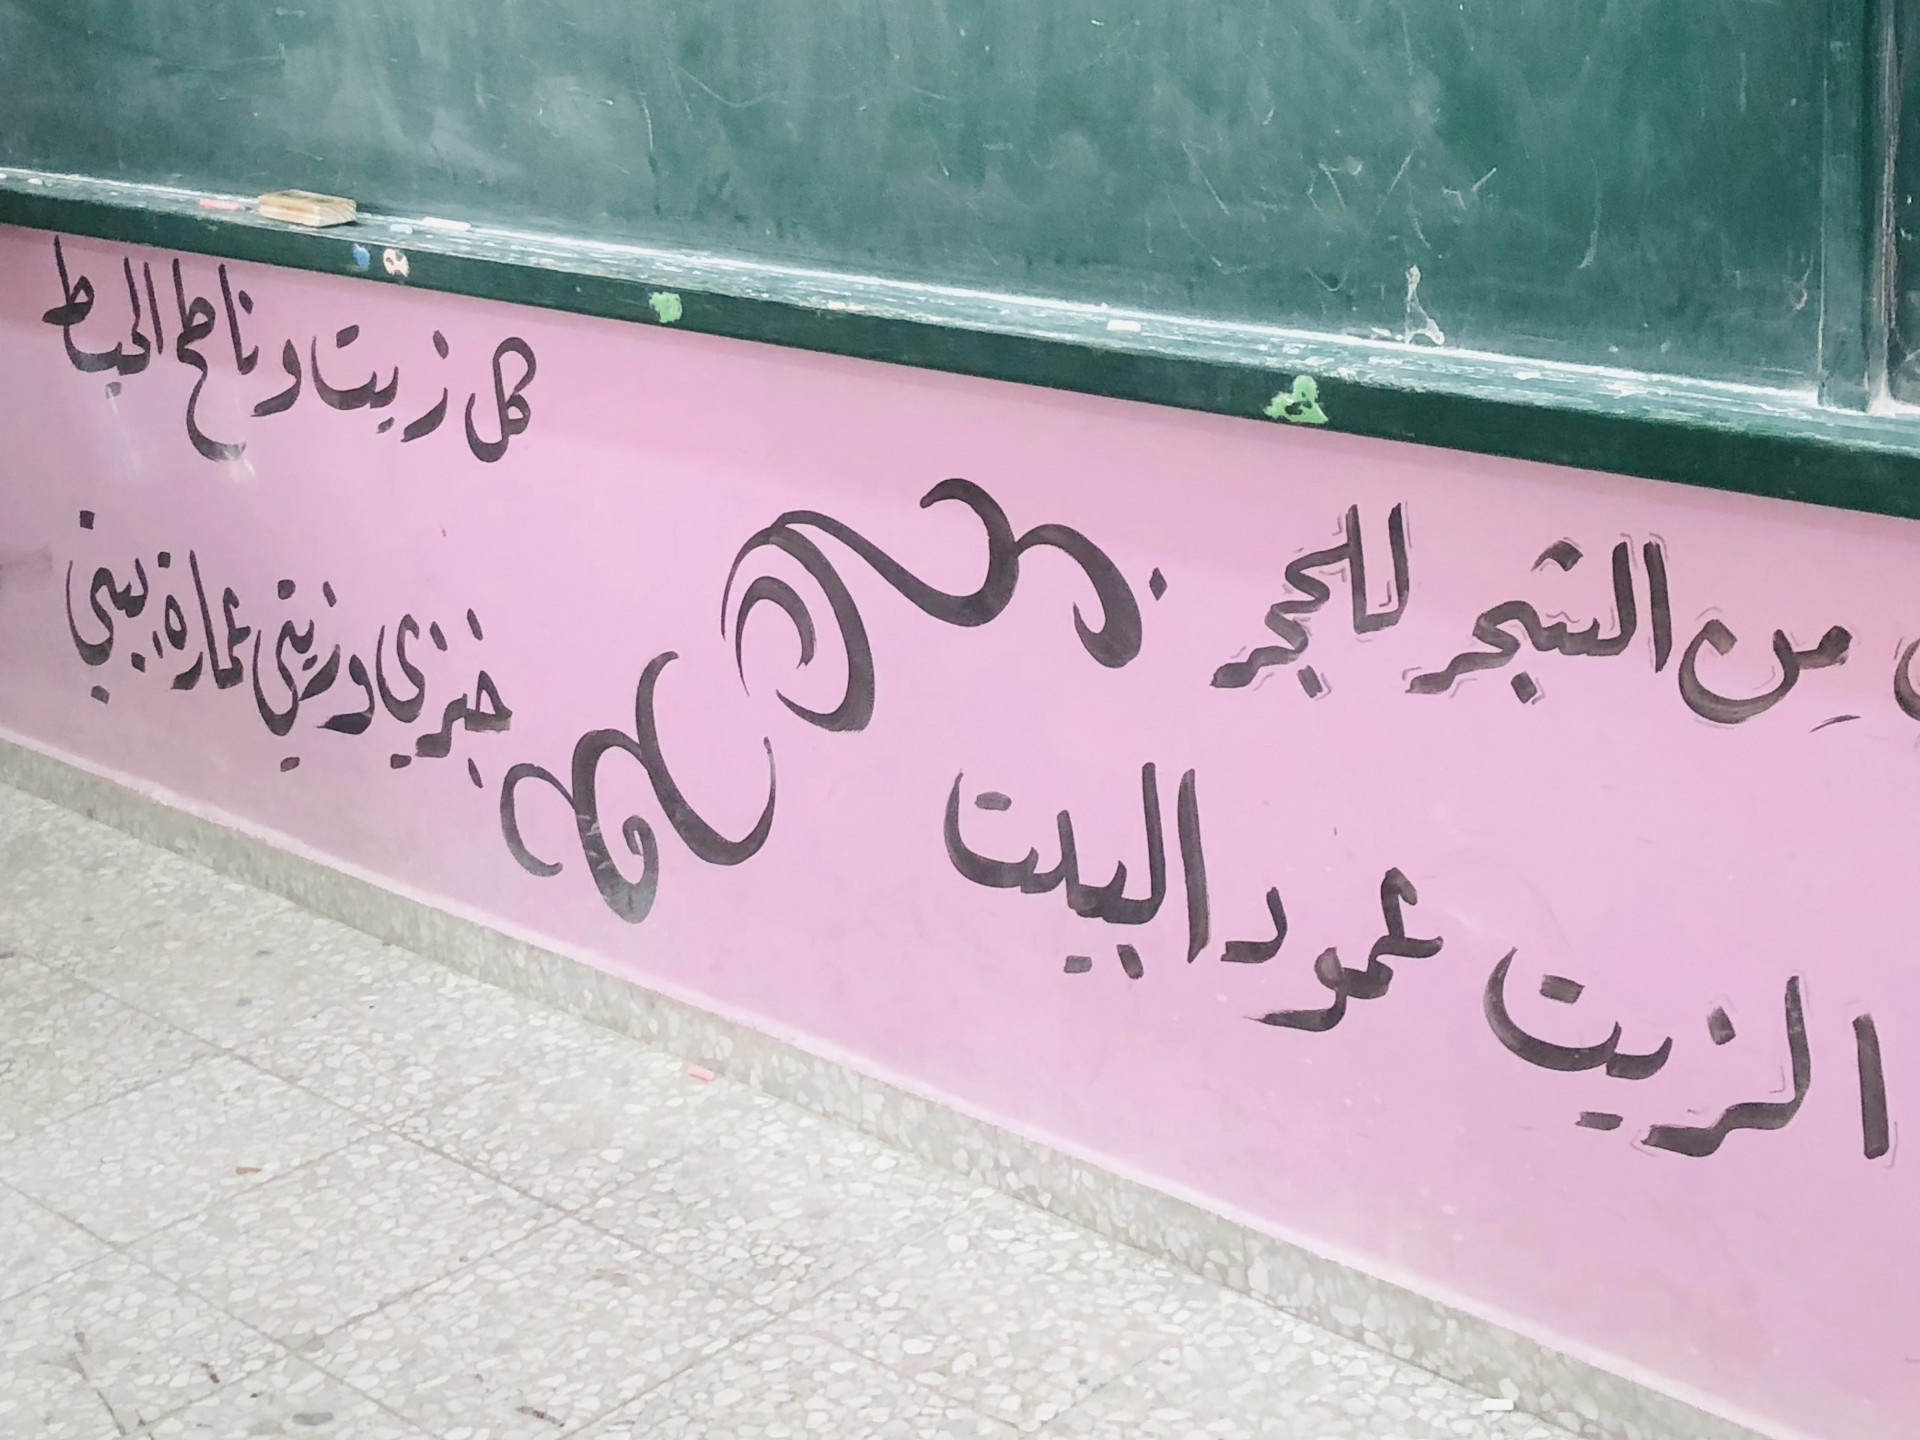 من الشجر للحجر
الزيت عمود البيت
كل زيت وناطح الحيط
خبزي وزيتي عمارة بيتي